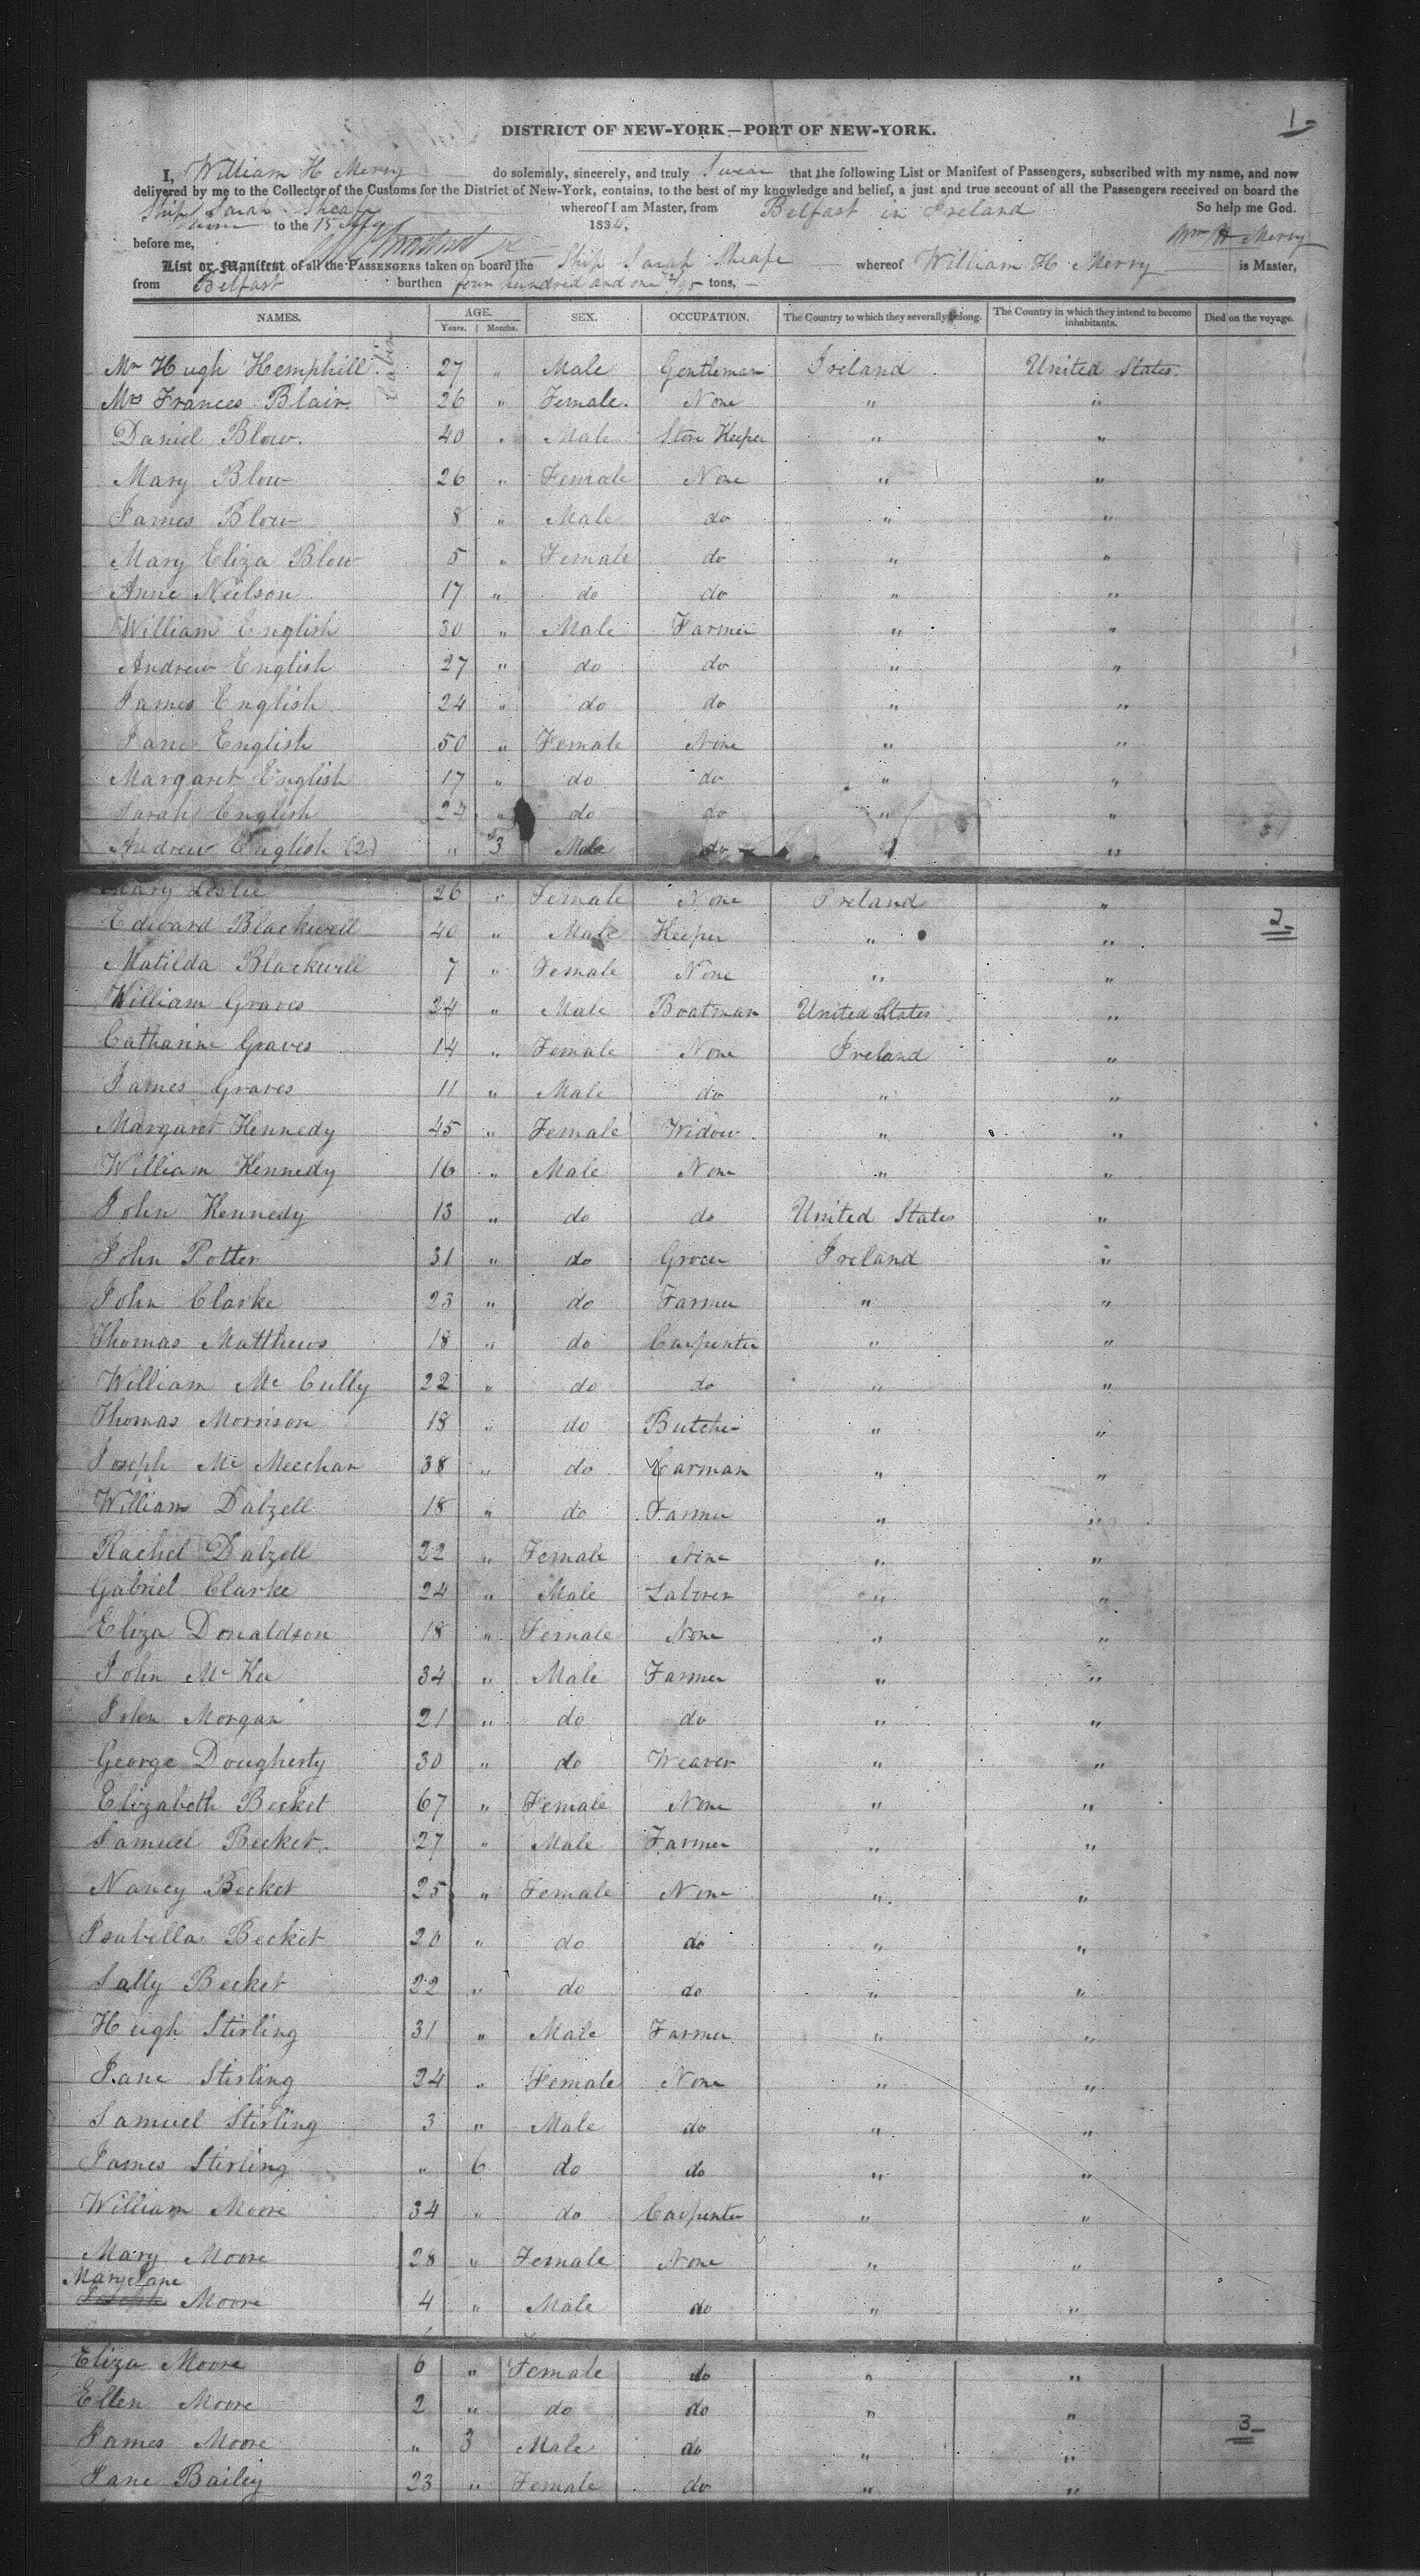 1-
DISTRICT OF NEW-YORK—PORT OF NEW-YORK.
I, William H Merry do solemnly, sincerely, and truly Swear that the following List or Manifest of Passengers, subscribed with my name, and now
delivered by me to the Collector of the Customs for the District of New-York, contains, to the best of my knowledge and belief, a just and true account of all the Passengers received on board the
Ship Sarah Sheafe whereof I am Master, from Belfast in Ireland So help me God.
Sworn to the 15 July 1834. Wm H Merry
before me,
List or Manifest of all the PASSENGERS taken on board the Ship Sarah Sheafe whereof William H Merry is Master,
from Belfast burthen four hundred and one /95 tons,
NAMES. AGE. SEX. OCCUPATION. The Country to which they severally belong. The Country in which they intend to become inhabitants. Died on the voyage.
Years. Months.
Cabin
Mr Hugh Hemphill 27 " Male Gentleman Ireland United States.
Mrs Frances Blair. 26 " Female. None " "
Daniel Blow. 40 " Male Store Keeper " "
Mary Blow 26 " Female None " "
James Blow 8 " Male do " "
Mary Eliza Blow 5 " Female do " "
Anne Neilson 17 " do do " "
William English 30 " Male Farmer " "
Andrew English 27 " do do " "
James English 24 " do do " "
Jane English 50 " Female None " "
Margaret English 17 " do do " "
Sarah English 24 " do do " "
Andrew English (2) " 3 Male do " "
Mary Leslie 26 " Female None Ireland "
2-
Edward Blackwell 40 " Male Keeper " "
Matilda Blackwell 7 " Female None " "
William Graves 34 " Male Boatman United States "
Catharine Graves 14 " Female None Ireland "
James Graves 11 " Male do " "
Margaret Kennedy 45 " Female Widow " "
William Kennedy 16 " Male None " "
John Kennedy 13 " do do United States "
John Potter 31 " do Grocer Ireland "
John Clarke 23 " do Farmer " "
Thomas Matthews 18 " do Carpenter " "
William Mc Cully 22 " do do " "
Thomas Morrison 18 " do Butcher " "
Joseph Mc Meechan 38 " do Carman " "
William Dalzell 18 " do Farmer " "
Rachel Dalzell 22 " Female None " "
Gabriel Clarke 24 " Male Laborer " "
Eliza Donaldson 18 " Female None " "
John Mc Kee 34 " Male Farmer " "
John Morgan 21 " do do " "
George Dougherty 30 " do Weaver " "
Elizabeth Becket 67 " Female None " "
Samuel Becket. 27 " Male Farmer " "
Nancy Becket 25 " Female None " "
Isabella Becket 20 " do do " "
Sally Becket 22 " do do " "
Hugh Stirling 31 " Male Farmer " "
Jane Stirling 24 " Female None " "
Samuel Stirling 3 " Male do " "
James Stirling " 6 do do " "
William Moore 34 " do Carpenter " "
Mary Moore 28 " Female None " "
Mary Jane
Moore 4 " Male do " "
Eliza Moore 6 " Female do " "
Ellen Moore 2 " do do " "
3-
James Moore " 3 Male do " "
Jane Bailey 23 " Female do " "